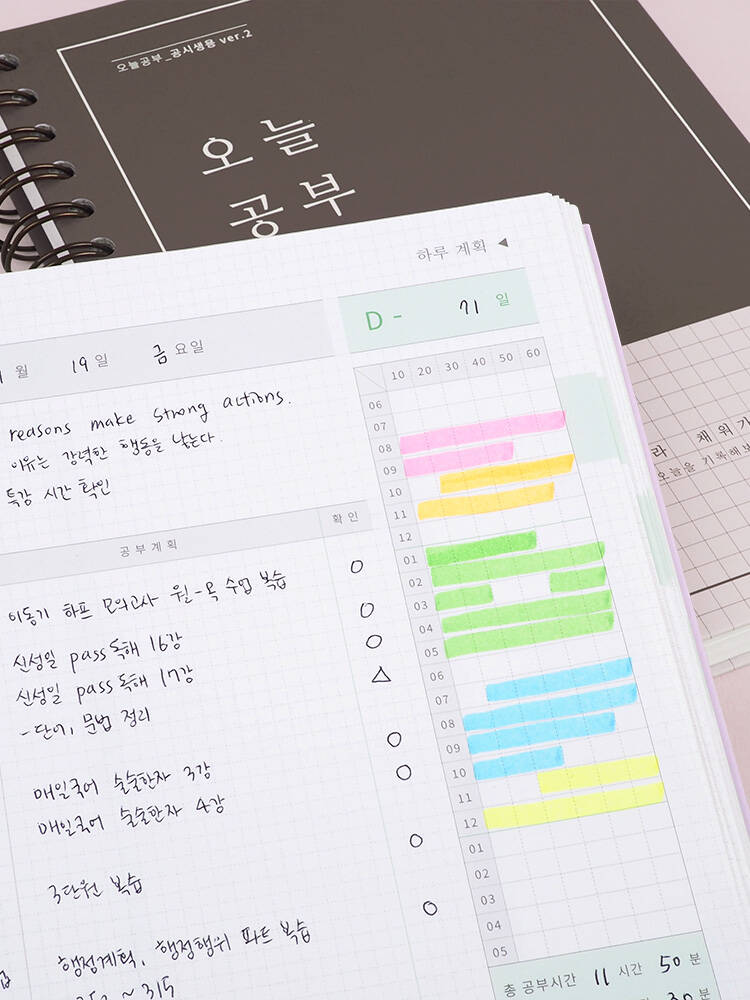 오늘공부_공시생용 ver.2
오늘
공부
하루 계획 ◀
월 19일 금요일
D- 71 일
reasons make strong actions.
이유는 강력한 행동을 낳는다.
특강 시간 확인
공부계획 확인
이동기 하프 모의고사 월-목 수업 복습 ○
○
신성일 pass 독해 16강 ○
신성일 pass 독해 17강 △
-단어, 문법 정리
매일국어 술술한자 3강 ○
매일국어 술술한자 4강 ○
3단원 복습 ○
행정계획, 행정행위 파트 복습 ○
~ 315
10 20 30 40 50 60
06
07
08
09
10
11
12
01
02
03
04
05
06
07
08
09
10
11
12
01
02
03
04
05
총 공부시간 11 시간 50 분
분
라 채워가
오늘을 기록해보